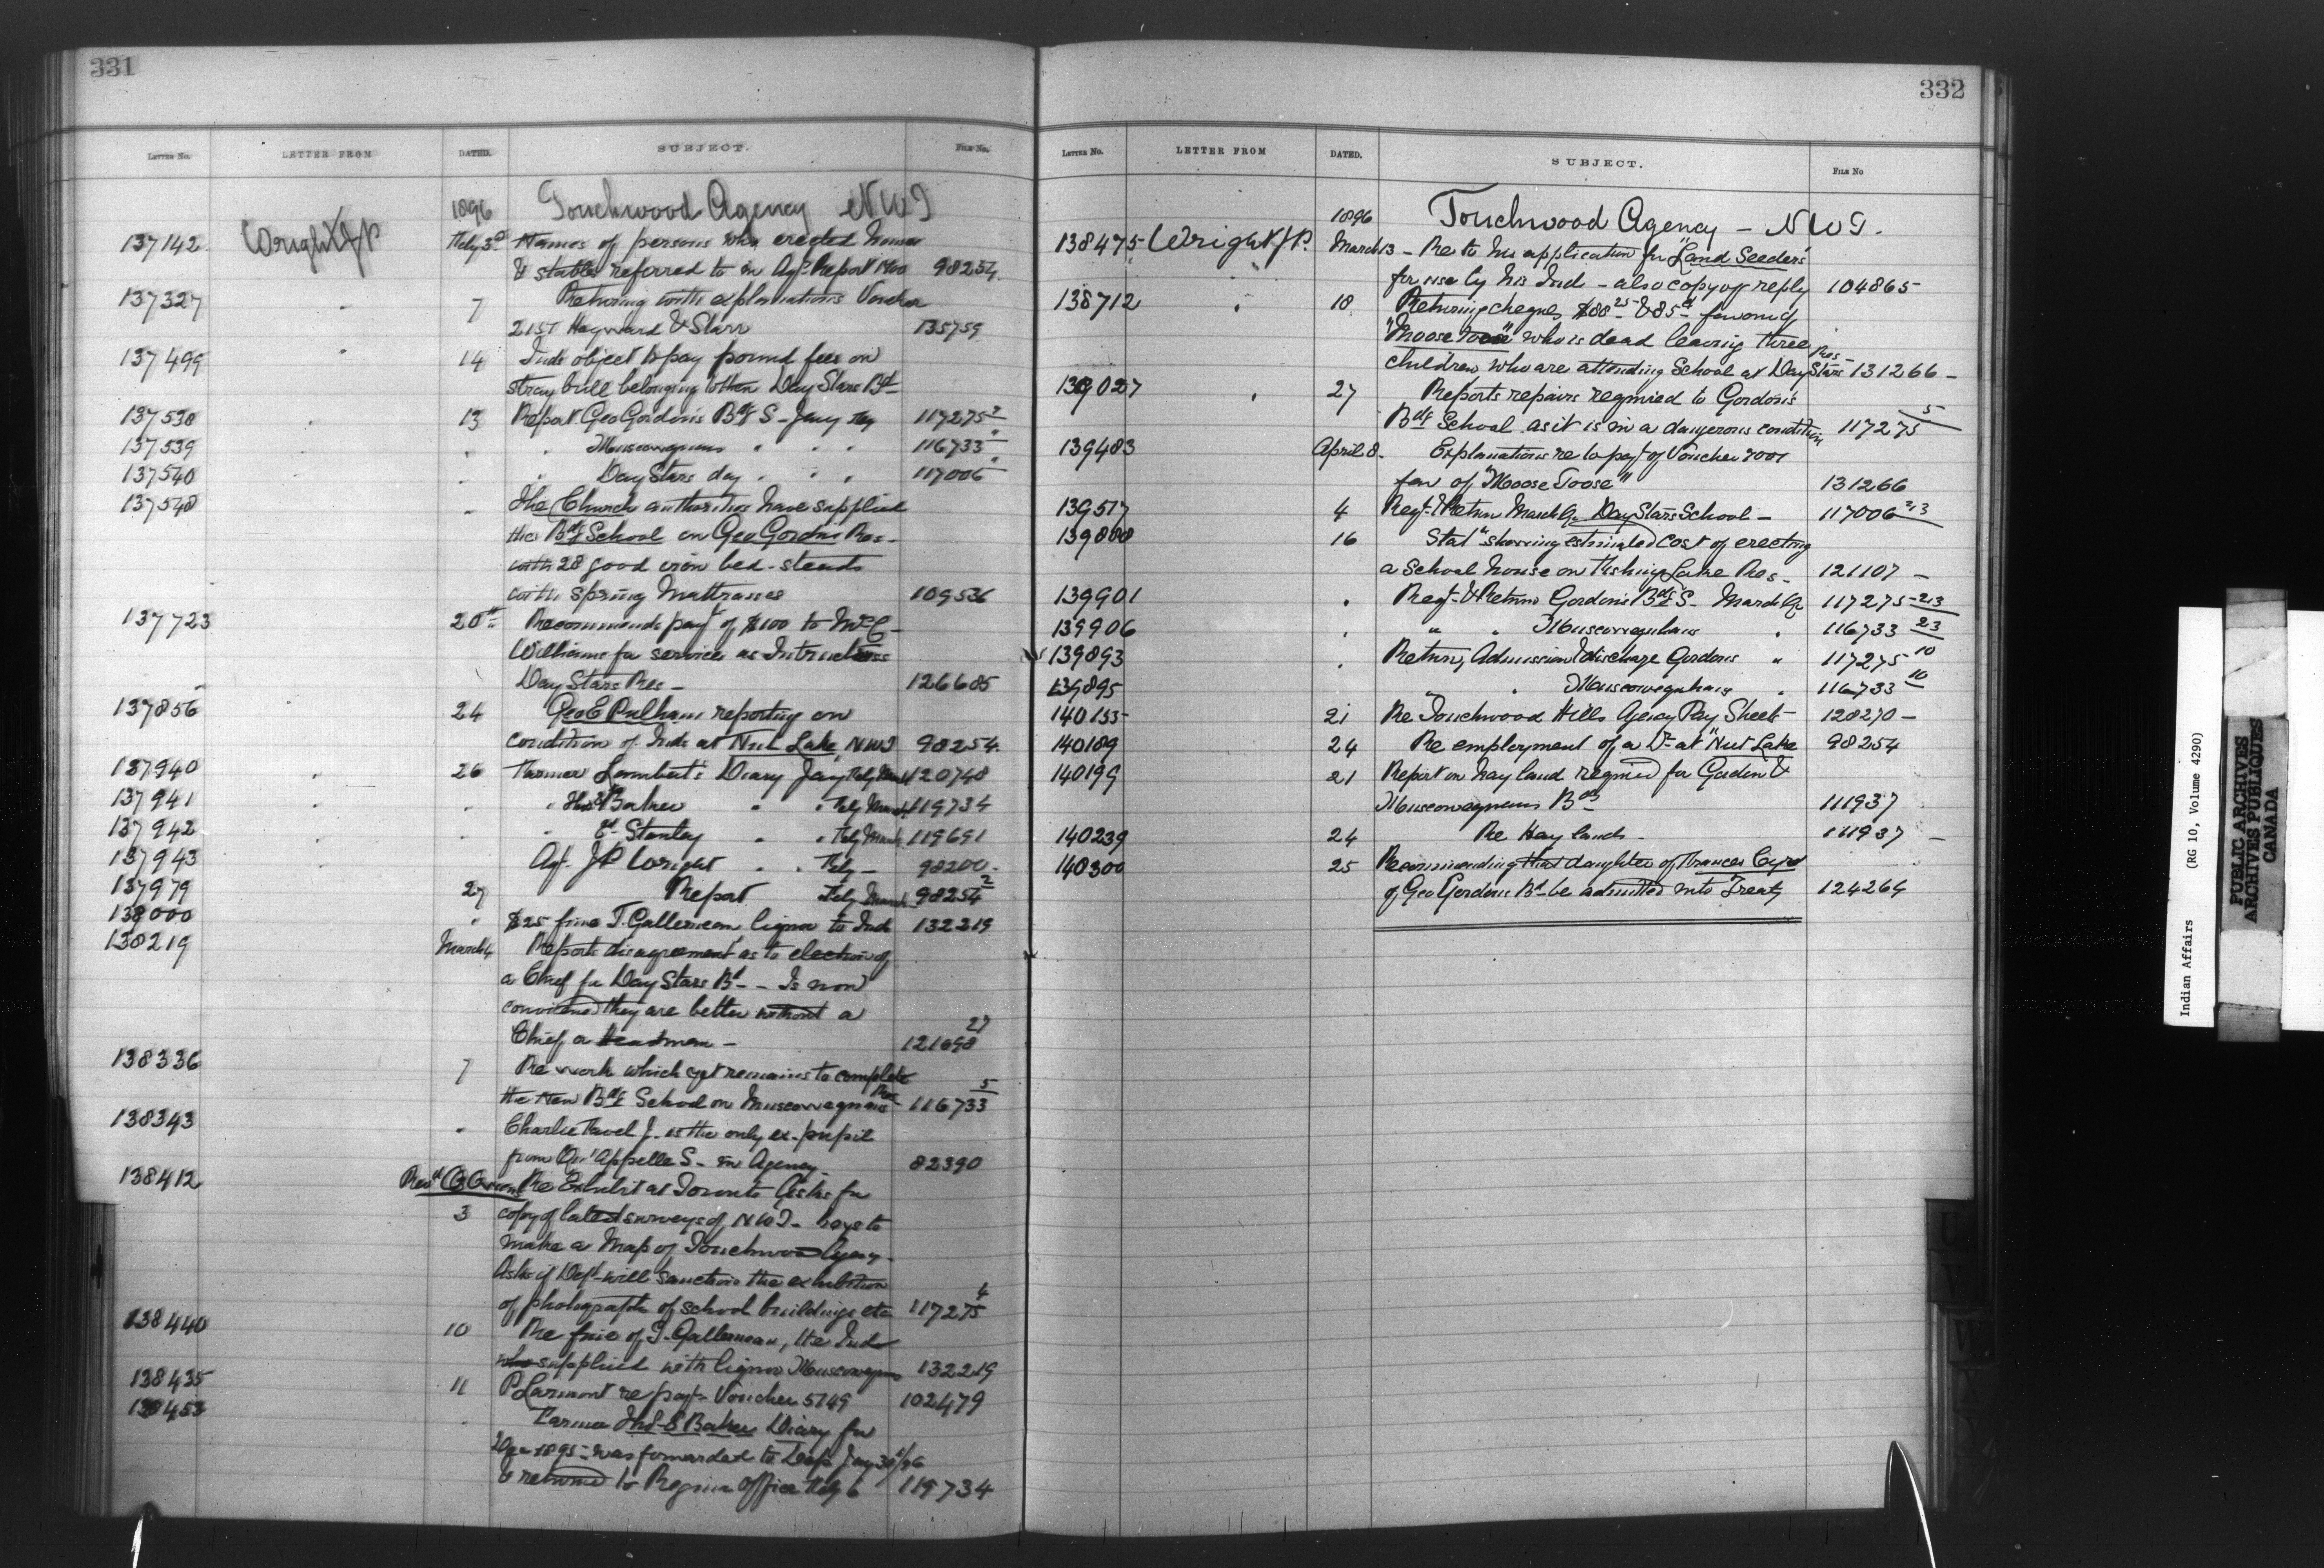 331
LETTER NO. LETTER FROM DATED. SUBJECT. FILE NO.
1896 Touchwood Agency NWT
137142 Wright J P Feby 3d Names of persons who erected houses
& stables referred to in Agts Report Nov 98254
137327 " 7 Returning with explanations Voucher
2157 Hayward & Starr 135759
137499 " 14 Inds object to pay pound fees on
stray bull belonging to them Day Stars Bd
137538 " 13 Report Geo Gordon's Bdg S - Jany 117275 2
137539 " " " Muscowequans " " " 116733 "
137540 " " Day Stars day " " " 117006 "
137548 " The Church authorities have supplied
the Bdg School on Geo Gordons Res.
with 28 good iron bed-steads
with spring mattrasses 109536
137723 20th Recommends payt of $100 to Mrs C
Williams for service as Intructress
Day Stars Res - 126685
137856 24 Geo E Pulham reporting on
condition of Inds at Nut Lake, NWT 98254
137940 " 26 Farmer Lambert's Diary Jany Feby March 120748
137941 " " " Baker " " Feby March 119734
137942 " " " Ed. Stanley " " Feby March 119691
137943 " Agt. J P Wright " " Feby - 98200
137979 27 Report Feby March 98254 2
138000 " $25 fine T. Gallerneau, liquor to Inds 132219
138219 March 4 Reports disagreement as to election of
a Chief for Day Stars Bd - - Is now
convinced they are better without a
Chief or Headman - 121698 27
138336 7 Re work which yet remains to complete
the New Bdg School on Muscowequans Res 116733 5
138343 " Charlie Favel J. is the only ex-pupil
from Qu'Appelle S - in Agency - 82390
138412 Revd O Owens Re Exhibit at Toronto Asks for
3 copy of latest surveys of NWT - boys to
make a Map of Touchwood Agency -
Asks if Dept will sanction the exhibition
of photographs of school buildings etc 117275 4
138440 10 Re fine of T. Gallerneau, the Inds
who supplied with liquor Muscowequans 132219
138435 11 P Larmont re payt - Voucher 5749 102479
138453 " Farmer Baker Diary for
Dec 1895 - was forwarded to Dept Jany 30th/96
& returned to Regina Office Feby 6 119734
332
LETTER NO. LETTER FROM DATED. SUBJECT. FILE NO
1896 Touchwood Agency - NWT.
138475 Wright J P. March 13 - Re to his application for "Land Seeders"
for use by his Inds - also copy of reply 104865 -
138712 " 18 Returning cheques $88 25 & 85 favour of
"Moose Toose" who is dead leaving three
children who are attending School at Day Stars Res - 131266 -
139027 " 27 Reports repairs required to Gordon's
Bdg School as it is in a dangerous condition 117275 5
139483 April 8. Explanations re to payt of Voucher 2001
fav of "Moose Toose" 131266
139517 4 Regt & Return March Qr Day Stars School - 117006 2-3
139880 16 Statt showing estimated cost of erecting
a School house on Fishing Lake Res - 121107 -
139901 " Regt & Return Gordon's Bdg S - March Qr 117275 - 2-3
139906 " " " Muscowequhans " 116733 23
139893 " Return, Admission & discharge Gordons " 117275 10
139895 " " Muscowequhans " 116733 10
140155 21 Re Touchwood Hills Agency Pay Sheets 128270 -
140189 24 Re employment of a Dr at "Nut Lake 98254
140199 21 Report on hay land required for Gordon &
Muscowequans Bds 111937
140239 24 Re Hay lands - 111937 -
140300 25 Recommending that daughter of Frances Cyr
of Geo Gordons Bd be admitted into Treaty 124264
Indian Affairs (RG 10, Volume 4290)
PUBLIC ARCHIVES
ARCHIVES PUBLIQUES
CANADA